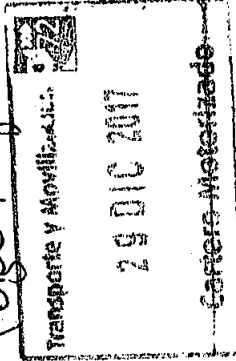 Transporte y Movilización
29 DIC 2017
Cartero Motorizado